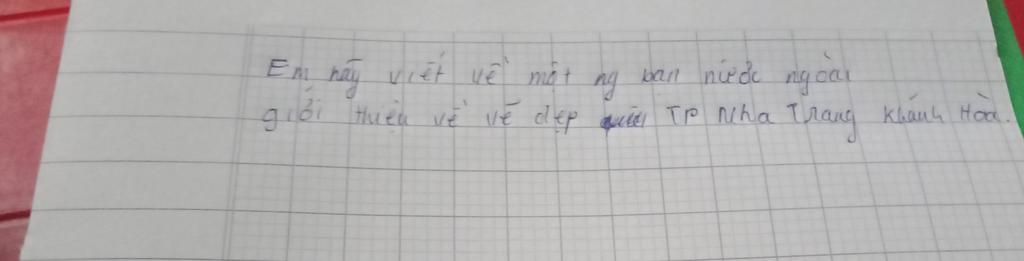 Em hãy viết về một ng bạn nước ngoài
giới thiệu về vẽ đẹp TP Nha Trang Khánh Hòa.